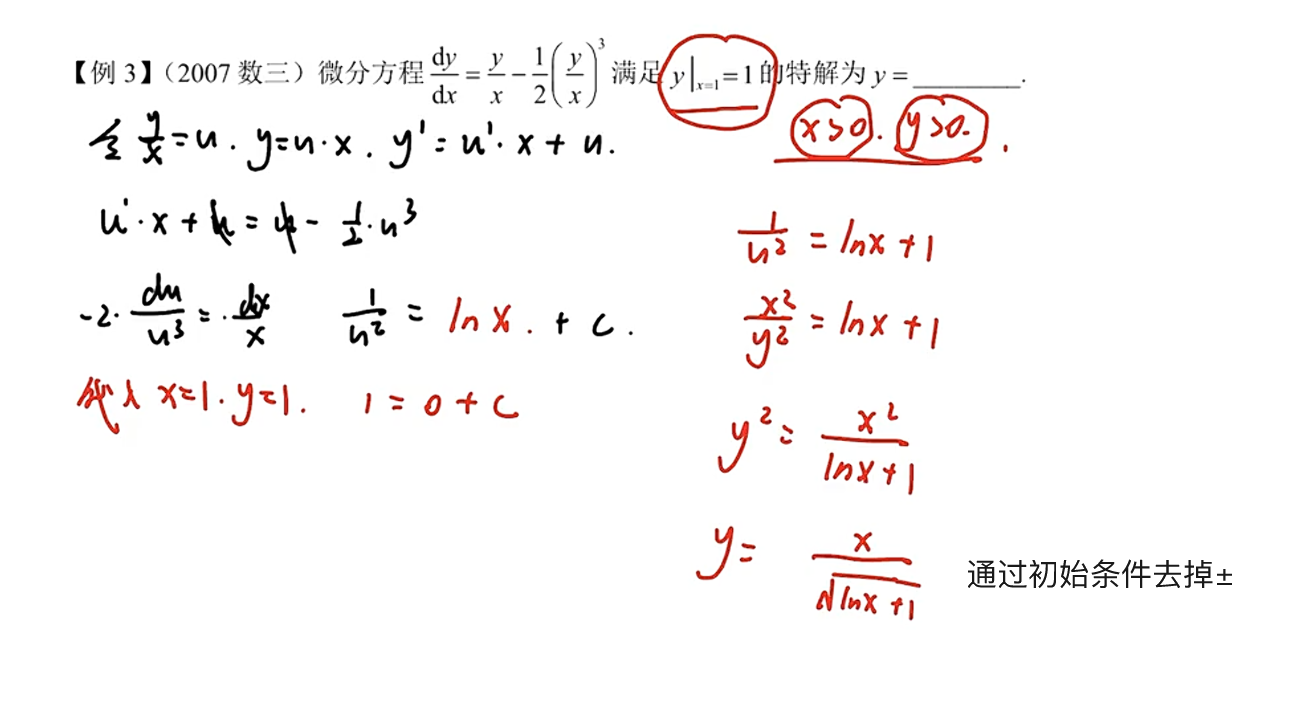 【例 3】（2007 数三）微分方程 dy/dx = y/x − 1/2 (y/x)^3 满足 y|_{x=1} = 1 的特解为 y = ________.
x>0. y>0.
令 y/x = u. y = u·x. y' = u'·x + u.
u'·x + u = u − 1/2·u^3
-2· du/u^3 = ·dx/x 1/u^2 = ln x. + C.
代入 x=1. y=1. 1 = 0 + C
1/u^2 = lnx + 1
x^2/y^2 = lnx + 1
y^2 = x^2/(lnx + 1)
y = x/√(lnx + 1) 通过初始条件去掉±